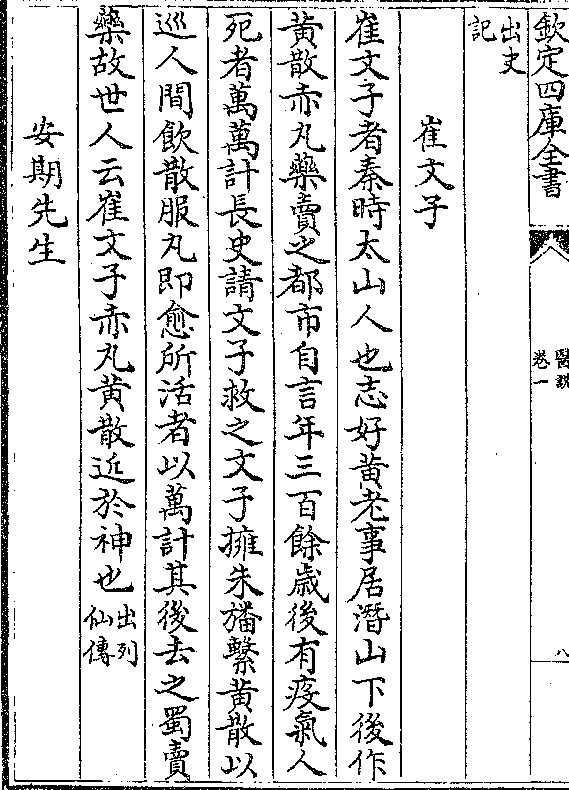 欽定四庫全書
醫說
卷一
八
出史
記
崔文子
崔文子者秦時太山人也志好黄老事居潛山下後作
黄散赤丸藥賣之都市自言年三百餘歲後有疫氣人
死者萬萬計長史請文子救之文子擁朱旛繫黄散以
巡人間飲散服丸即愈所活者以萬計其後去之蜀賣
藥故世人云崔文子赤丸黄散近於神也
出列
仙傳
安期先生